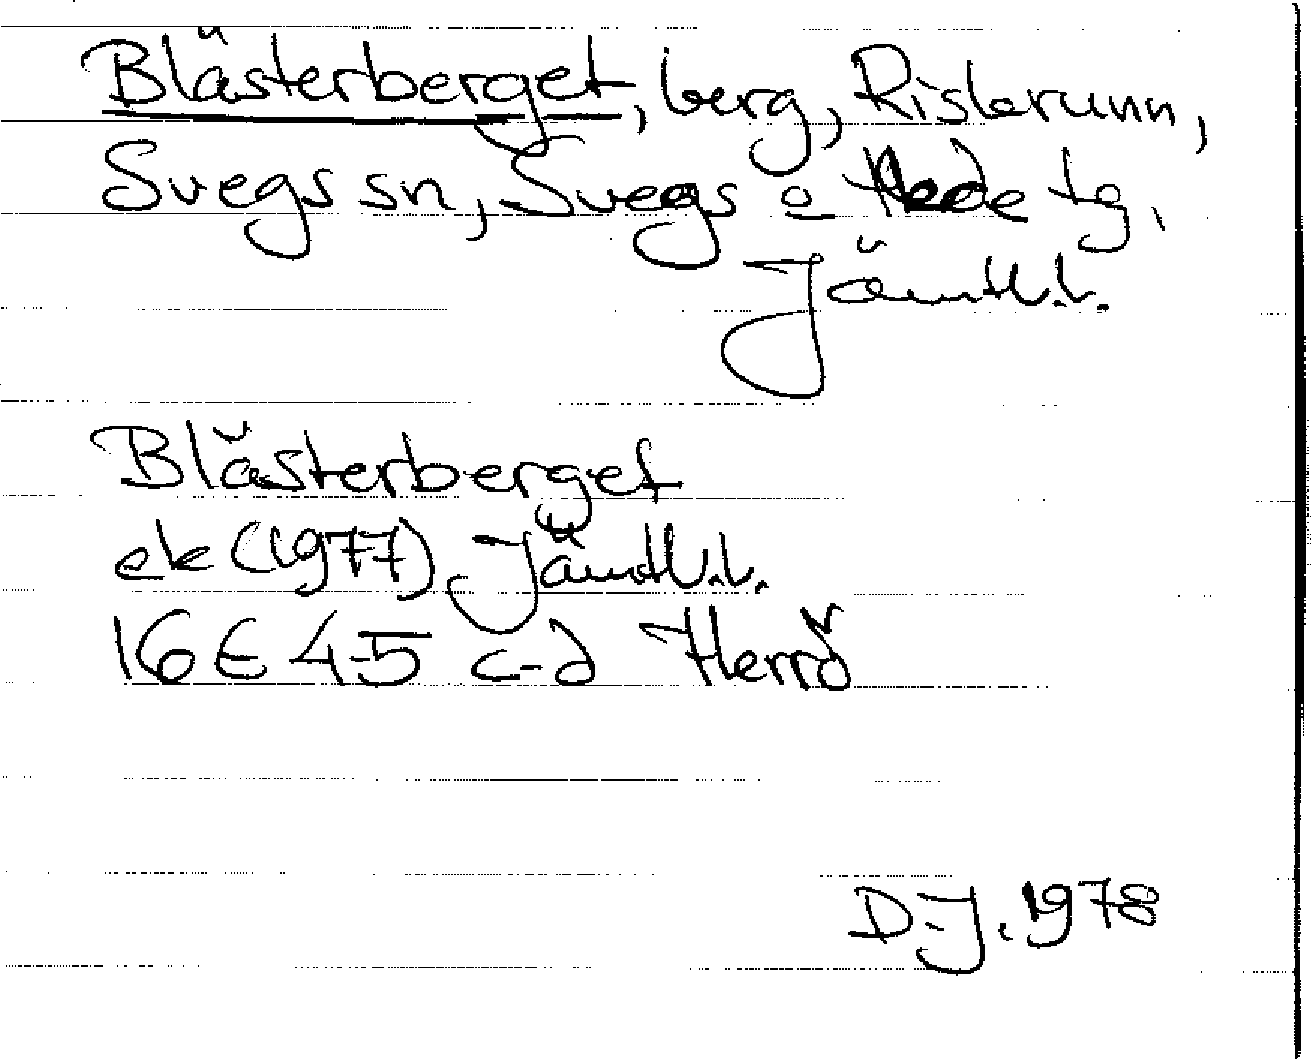 Blästerberget, berg, Risbrunn,
Svegs sn, Svegs o Hede tg,
Jämtl.l.
Blästerberget
ek (1977) Jämtl.l.
16E 4-5 c-d Herrö
D-J. 1978